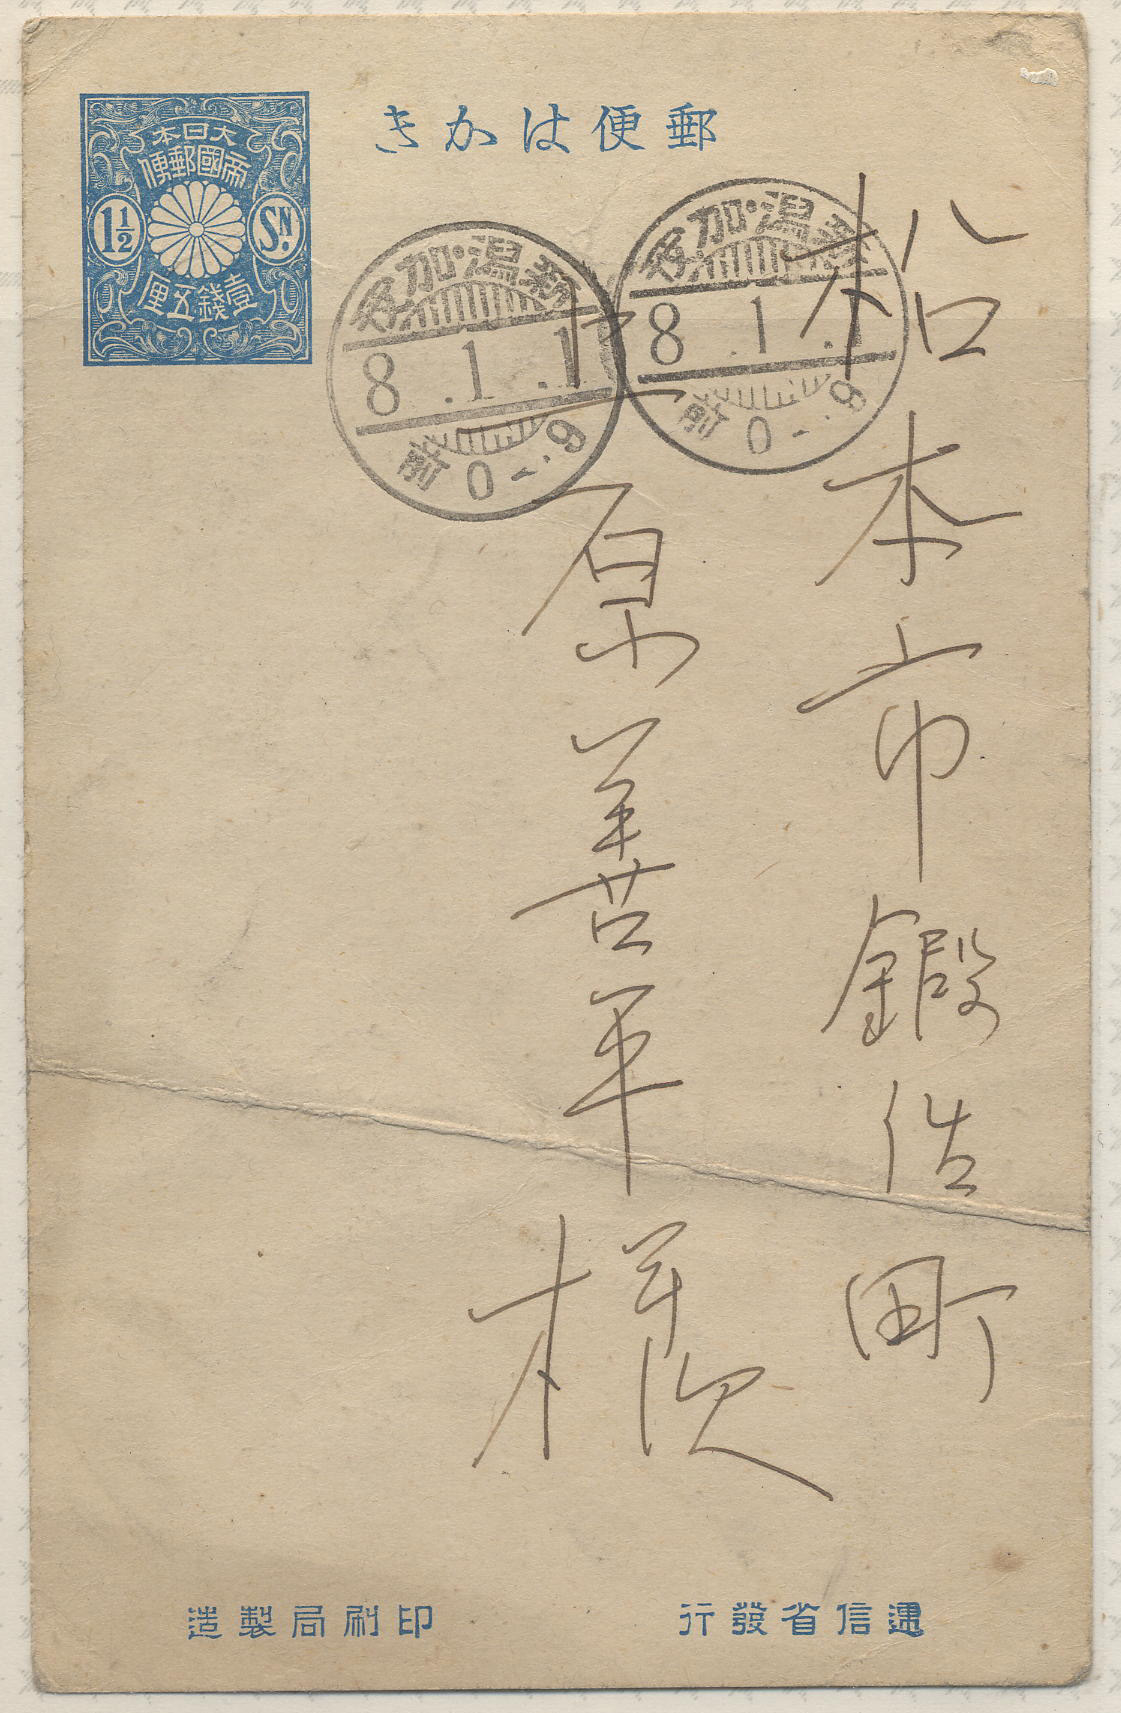 郵便はかき
大日本
帝國郵便
1½ SN.
壹錢五厘
新潟・加茂
8.1.1
前0-.9
新潟・加茂
8.1.1
前0-.9
松本市鍛冶町
上原善平様
遞信省發行
印刷局製造